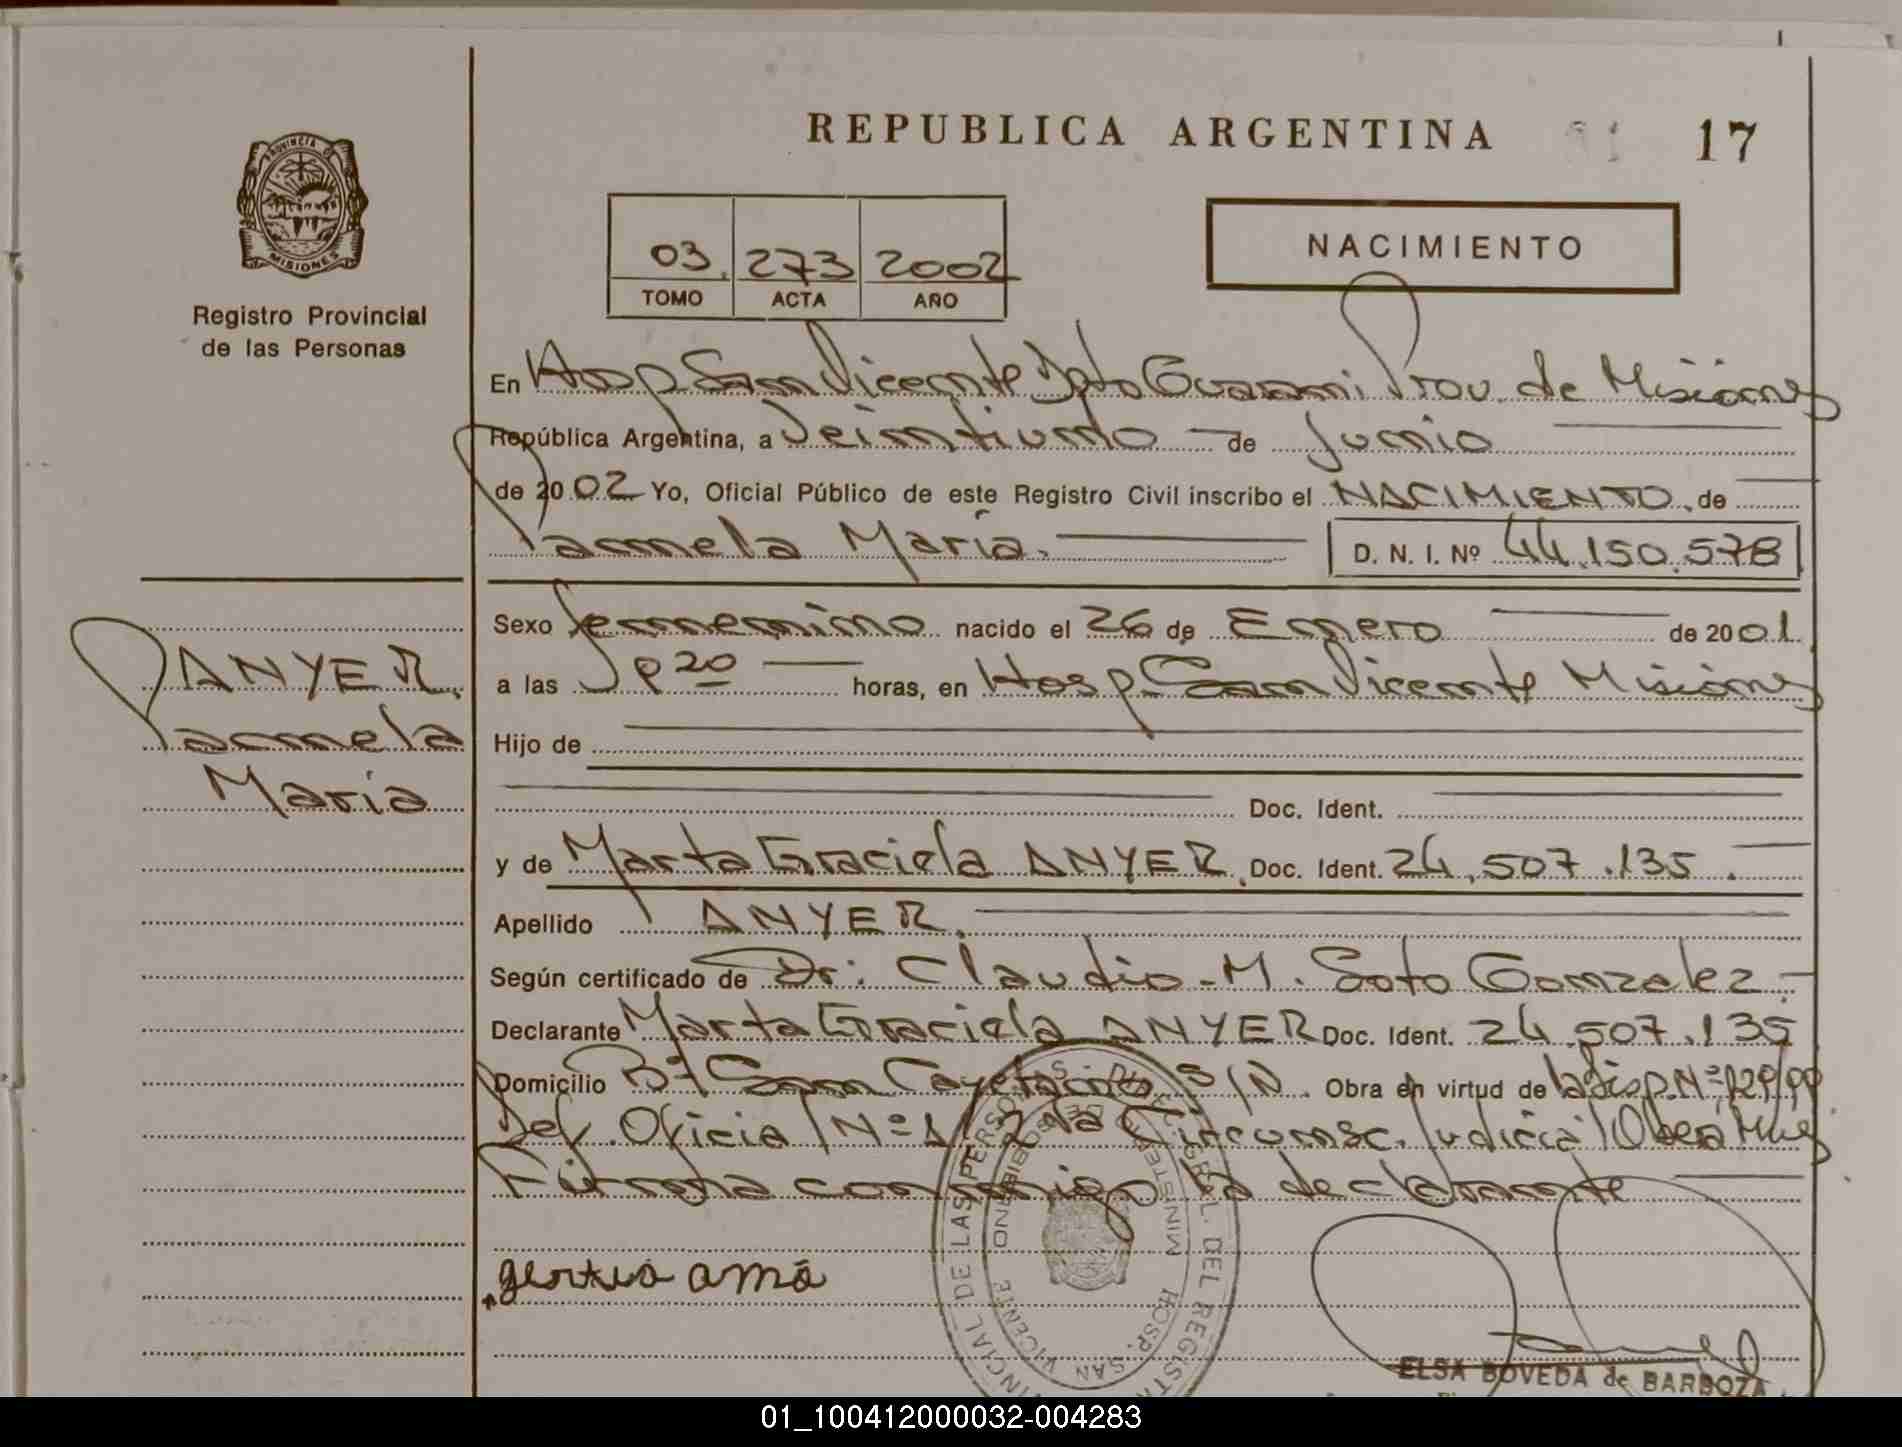 REPUBLICA ARGENTINA 17
PROVINCIA DE
MISIONES
Registro Provincial
de las Personas
03. 273 2002
TOMO ACTA AÑO
NACIMIENTO
En Hosp San Vicente Dpto Guarani Prov. de Misiones
República Argentina, a Veintiuno de Junio
de 2002 Yo, Oficial Público de este Registro Civil inscribo el NACIMIENTO de
Pamela María.
D. N. I. Nº 44.150.578
Sexo femenino nacido el 26 de Enero de 2001
a las 20 horas, en Hosp San Vicente Misiones
ANYER
Pamela
María
Hijo de
Doc. Ident.
y de Marta Graciela ANYER Doc. Ident. 24.507.135.
Apellido ANYER.
Según certificado de Dr: Claudio M. Soto Gonzalez
Declarante Marta Graciela ANYER Doc. Ident. 24.507.135
Domicilio Bº San Cayetano S/N. Obra en virtud de la Disp. Nº
Def. Oficial Nº 1 2da Circunsc. Judicial Obera Mnes
Firma conmigo la declarante
ELSA BOVEDA de BARBOZA
HOSP. SAN VICENTE
01_100412000032-004283